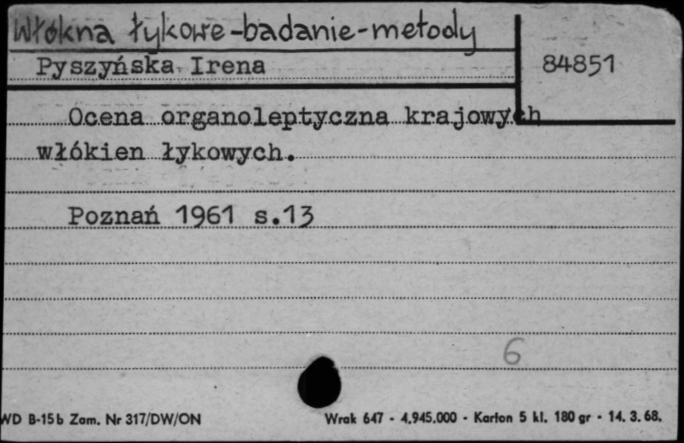 Włókna łykowe-badanie-metody
Pyszyńska Irena
84851
Ocena organoleptyczna krajowych
włókien łykowych.
Poznań 1961 s.13
6
WD B-15b Zam. Nr 317/DW/ON
Wrak 647 - 4.945.000 - Karton 5 kl. 180 gr - 14. 3. 68.